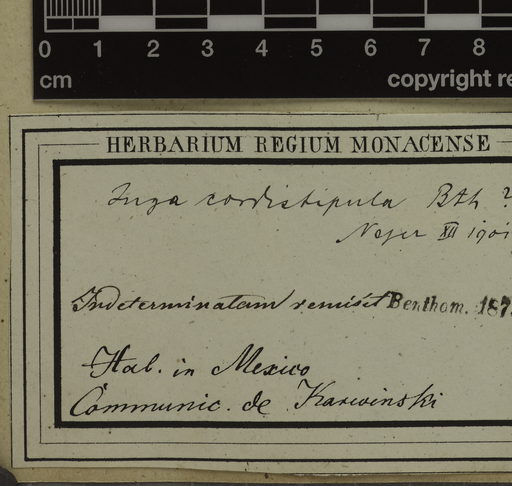 0 1 2 3 4 5 6 7 8
cm
copyright re
HERBARIUM REGIUM MONACENSE
Inga cordistipula Bth ?
Neger XII 1901
Indeterminatam remisit Bentham. 187
Hab. in Mexico
Communic. de Karwinski